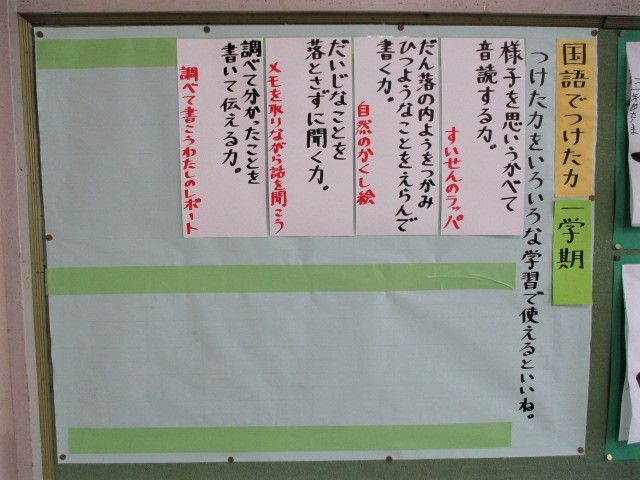 国語でつけた力
一学期
つけた力をいろいろな学習で使えるといいね。
様子を思いうかべて
音読する力。
すいせんのラッパ
だん落の内ようをつかみ
ひつようなことをえらんで
書く力。
自然のかくし絵
だいじなことを
落とさずに聞く力。
メモを取りながら話を聞こう
調べて分かったことを
書いて伝える力。
調べて書こうわたしのレポート